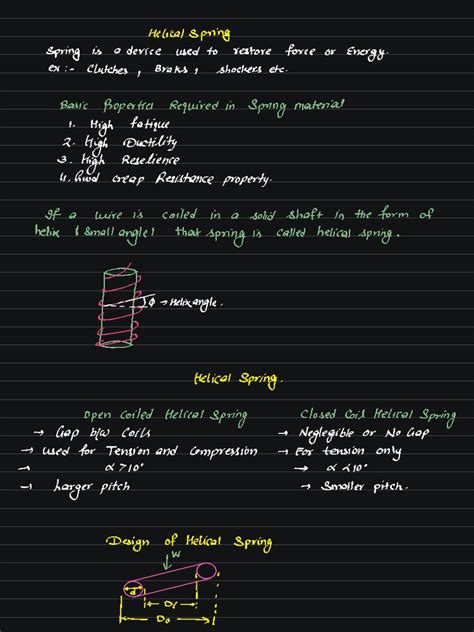 Helical Spring
Spring is a device used to restore force or Energy.
ex :- Clutches, Braks, shockers etc.
Basic Properties Required in Spring material
1. High fatigue
2. High Ductility
3. High Reselience
4. Good creap Resistance property.
If a wire is coiled in a solid shaft in the form of
helix (small angle) that spring is called helical spring.
ϕ → Helix angle.
Helical Spring.
Open Coiled Helical Spring
→ Gap b/w Coils
→ used for Tension and Compression
→ α > 10°
→ Larger pitch
Closed Coil Helical Spring
→ Neglegible or No Gap
→ For tension only
→ α < 10°
→ Smaller pitch.
Design of Helical Spring
W
d
Di
Do